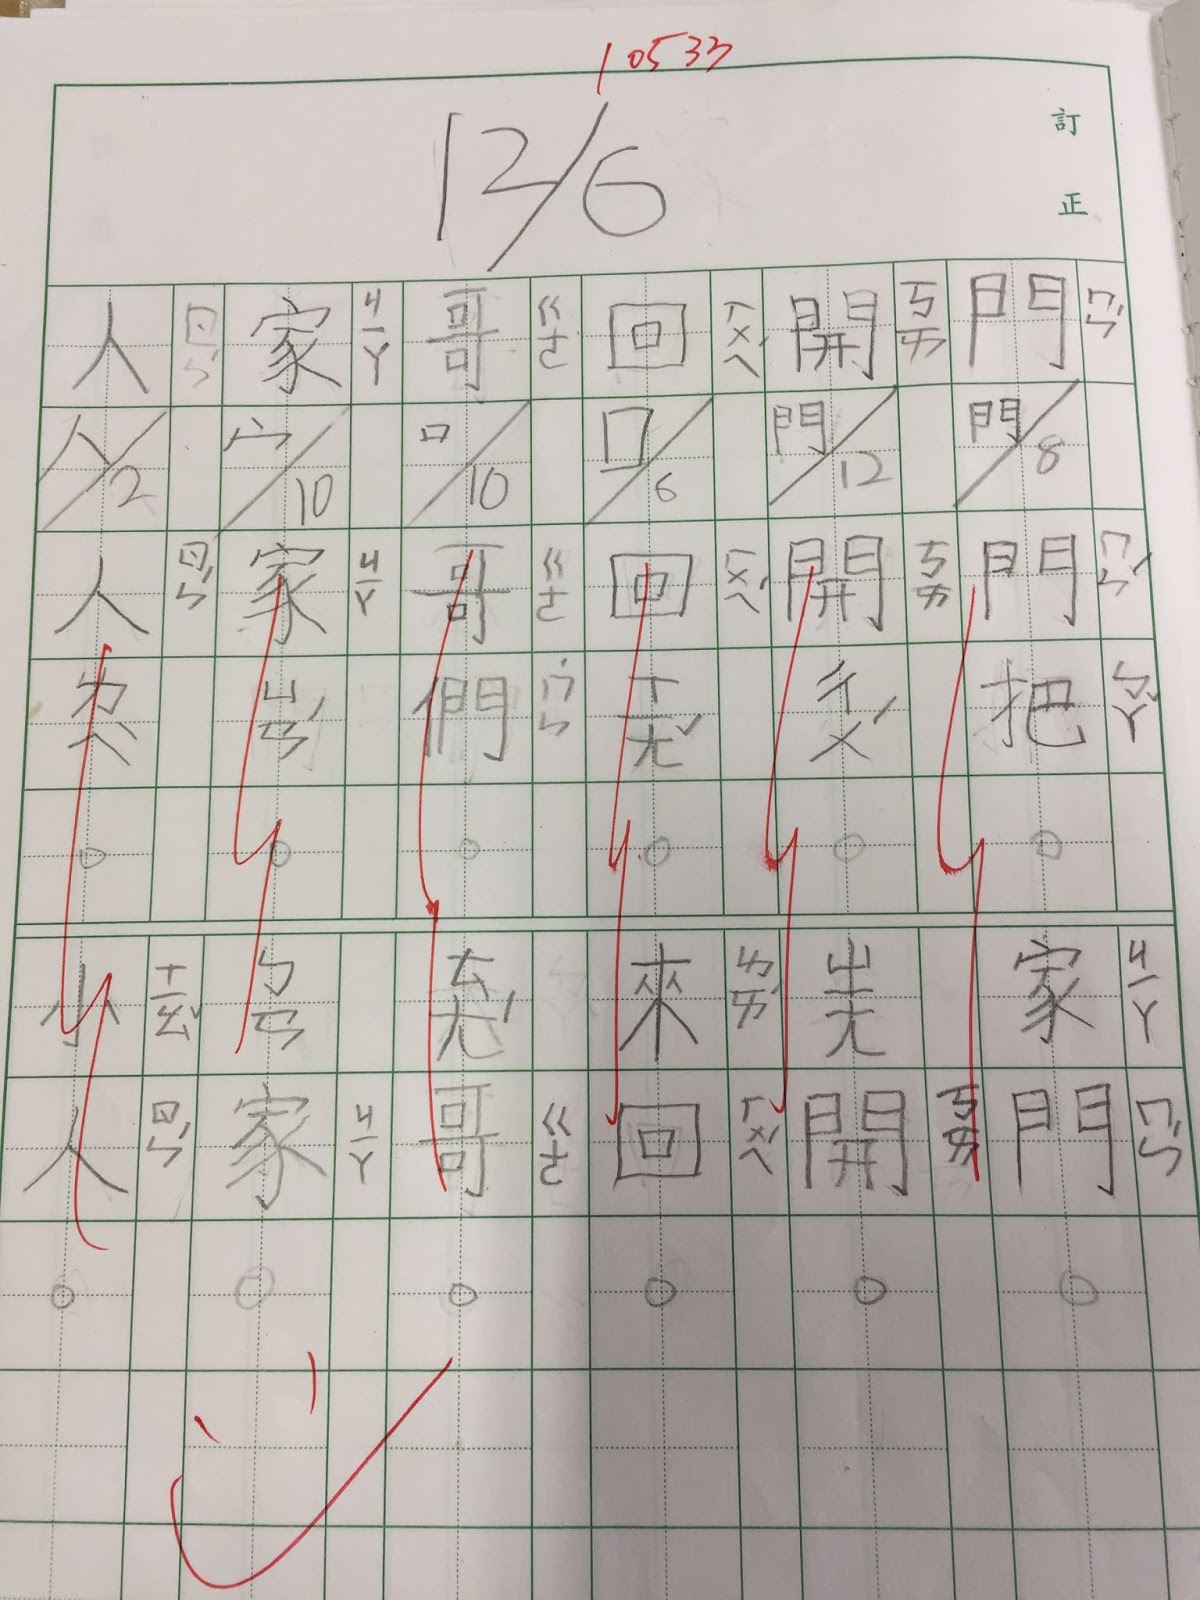 10533
12/6
訂正
門ㄇㄣˊ
門/8
門ㄇㄣˊ把ㄅㄚˇ。
家ㄐㄧㄚ門ㄇㄣˊ。
開ㄎㄞ
門/12
開ㄎㄞㄔㄨˊ。
ㄓㄤ開ㄎㄞ。
回ㄏㄨㄟˊ
囗/6
回ㄏㄨㄟˊㄒㄧㄤˇ。
來ㄌㄞˊ回ㄏㄨㄟˊ。
哥ㄍㄜ
口/10
哥ㄍㄜ們˙ㄇㄣ。
ㄊㄤˊ哥ㄍㄜ。
家ㄐㄧㄚ
宀/10
家ㄐㄧㄚㄩㄢˊ。
ㄅㄢ家ㄐㄧㄚ。
人ㄖㄣˊ
人/2
人ㄖㄣˊㄌㄟˋ。
小ㄒㄧㄠˇ人ㄖㄣˊ。